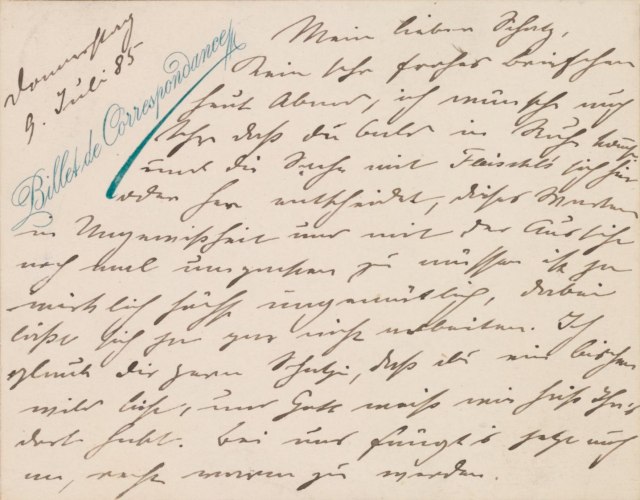 Donnerstag
9. Juli 85
Billet de Correspondance
Mein lieber Schatz,
Kein sehr frohes Briefchen
heut Abend, ich wünsche auch
sehr daß du bald in Ruhe kommst
und die Sache mit Fleischls sich hin
oder her entscheidet, dieses Warten
in Ungewißheit und mit der Aussicht
noch mal umziehen zu müssen ist ja
wirklich höchst ungemütlich, dabei
läßt sich ja gar nicht arbeiten. Ich
glaube dir gern Schatzi, daß du ein bischen
wild bist, und Gott weiß wie heiß Ihr's
dort habt. Bei uns fängt's jetzt auch
an, recht warm zu werden.